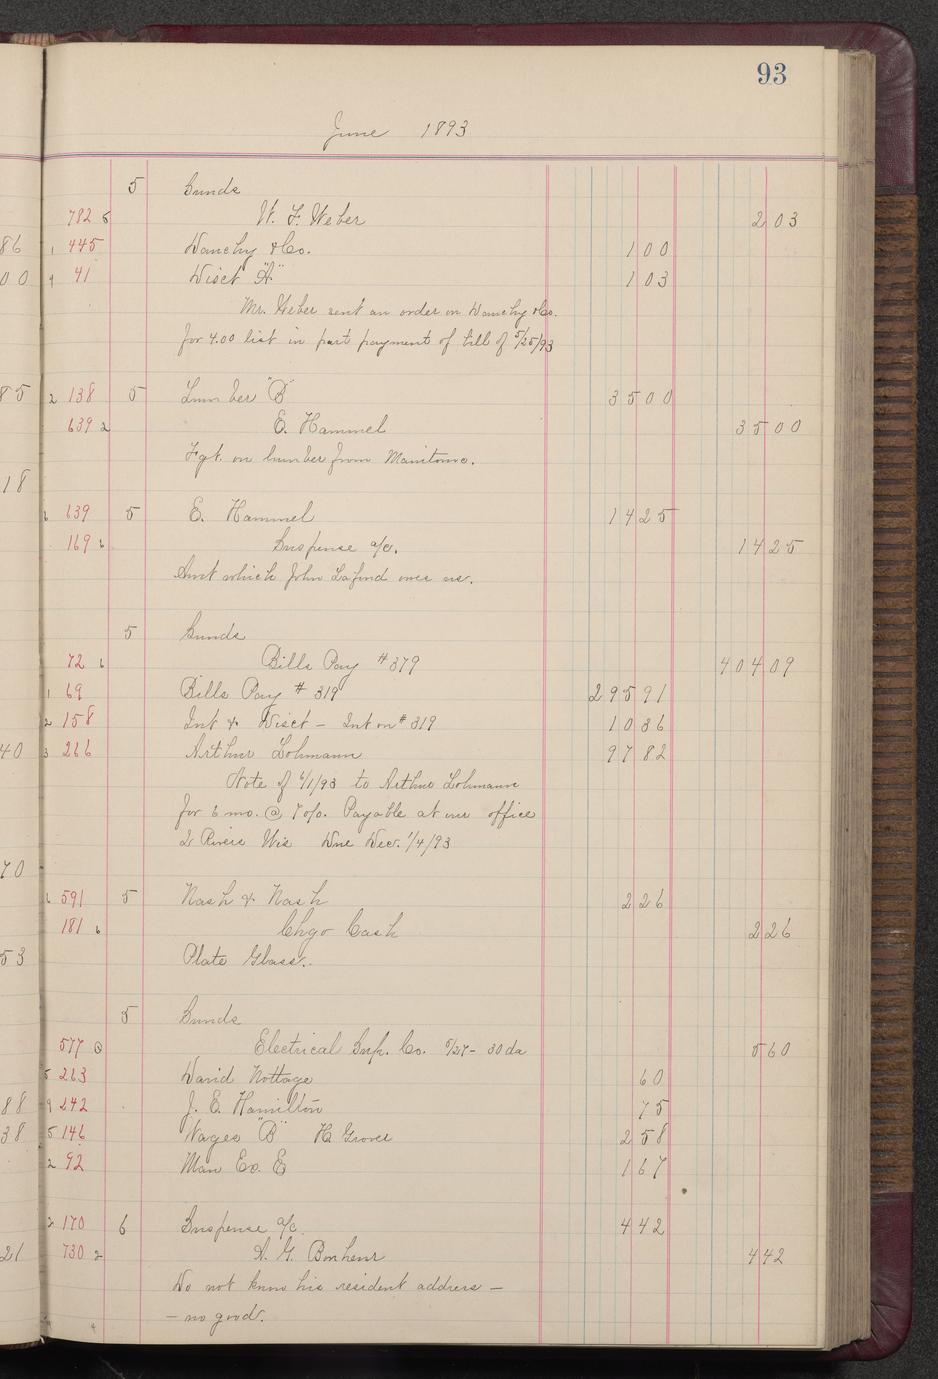 93
June 1893
5 Sunds
782 5 W. F. Weber 2 03
86 1 445 Wanchy & Co. 1 00
00 9 41 Disct "A" 1 03
Mr. Weber sent an order on Wanchy & Co.
for 4.00 list in part payment of bill of 5/25/93
85 2 138 5 Lumber "B" 35 00
639 2 E. Hammel 35 00
Fgt. on lumber from Manitowo.
18
639 5 E. Hammel 14 25
169 6 Suspense a/c. 14 25
Amt which John Lafond owes us.
5 Sunds
72 6 Bills Pay #379 404 09
1 69 Bills Pay # 319 295 91
2 158 Int & Disct - Int on # 319 10 36
40 3 266 Arthur Lohmann 97 82
Note of 6/1/93 to Arthur Lohmann
for 6 mo. @ 7 o/o. Payable at our office
2 Rivers Wis Due Dec. 1/4/93
70
591 5 Nash & Nash 2 26
181 6 Chgo Cash 2 26
53 Plate Glass.
5 Sunds
577 Electrical Sup. Co. 5/27 - 30 da 5 60
5 263 David Nottage 60
88 9 242 J. E. Hamilton 75
38 5 146 Wages "B" H. Grover 2 58
2 92 Man Ex. E 1 67
2 170 6 Suspense a/c. 4 42
21 730 2 A. G. Bonheur 4 42
Do not know his resident address -
- no good.